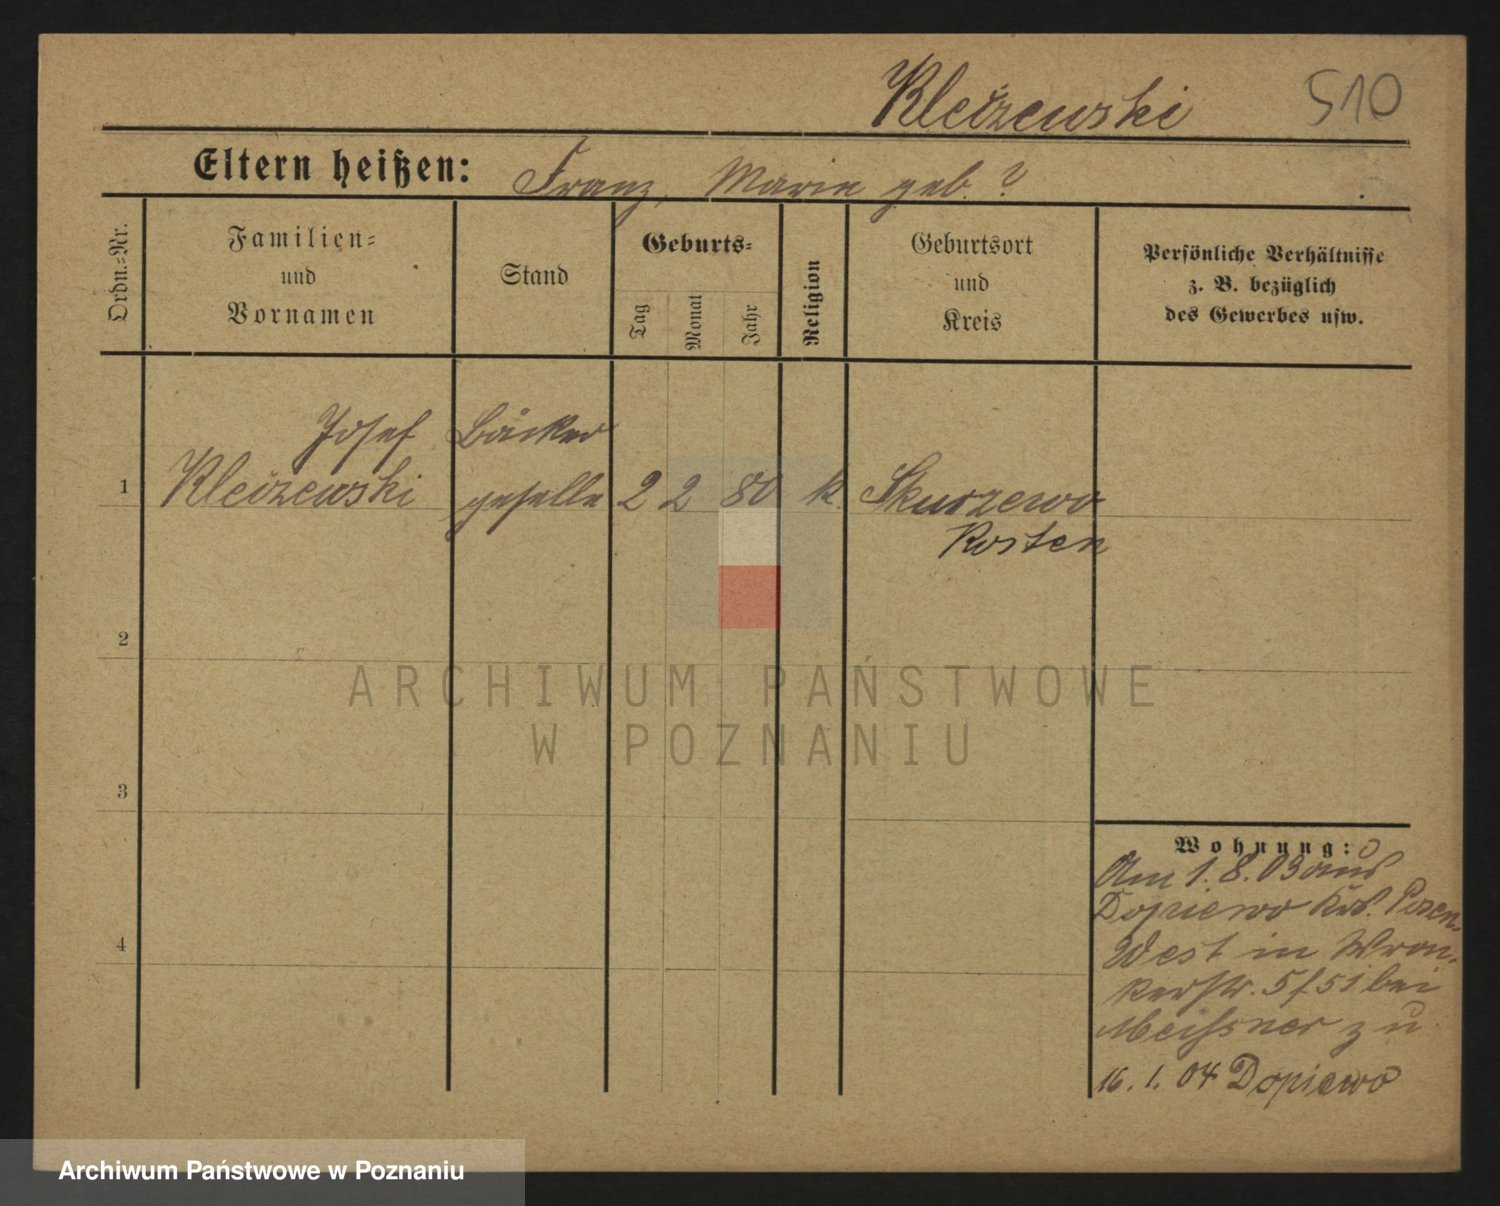 Kleiszewski 510
Eltern heißen: Franz, Marie geb. ?
Ordn.=Nr.
Familien=
und
Vornamen
Stand
Geburts=
Tag
Monat
Jahr
Religion
Geburtsort
und
Kreis
Persönliche Verhältnisse
z. B. bezüglich
des Gewerbes usw.
Josef Bäcker
1 geselle 2 2 80 k. Skurzewo
Kosten
2
3
4
Wohnung:
Am 1. 8. 03 aus
Dopiewo Krs. Posen-
West in Wron-
kerstr. 5/51 bei
Meissner zu
16. 1. 04 Dopiewo
ARCHIWUM PAŃSTWOWE
W POZNANIU
Archiwum Państwowe w Poznaniu